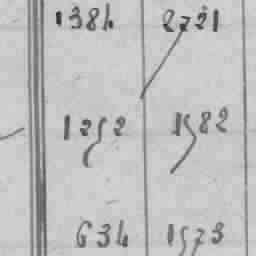 1384 2721
1252 1582
634 1573